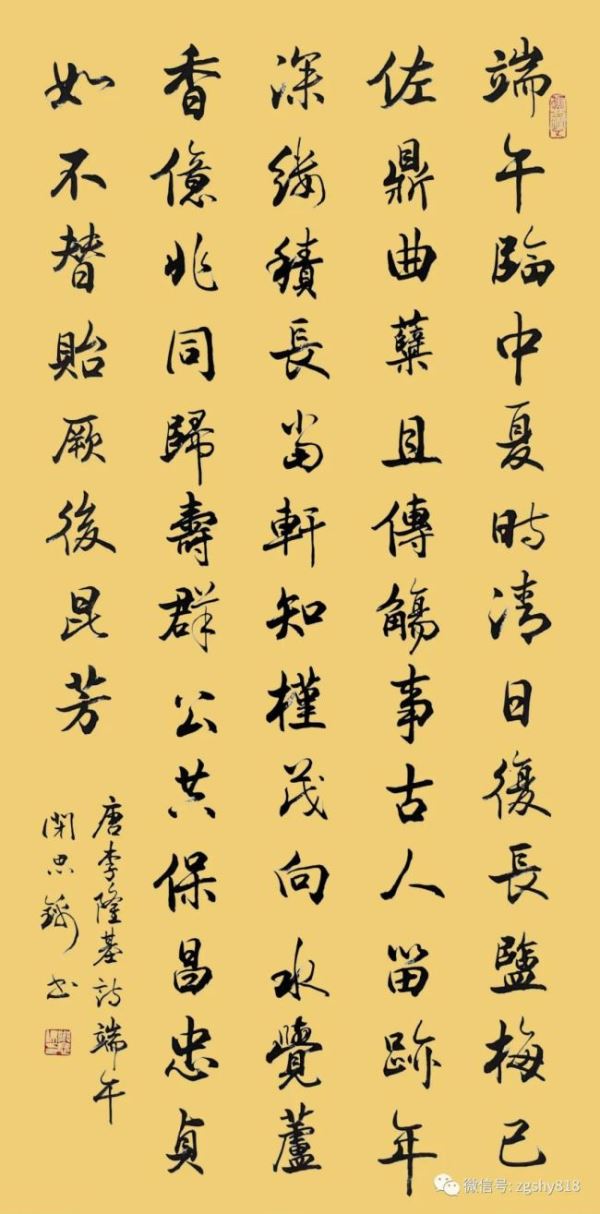 端午臨中夏時清日復長鹽梅已
佐鼎曲糵且傳觴事古人留跡年
深縷積長當軒知槿茂向水覺蘆
香億兆同歸壽群公共保昌忠貞
如不替貽厥後昆芳
唐李隆基詩端午
思書
微信号: zgshy818